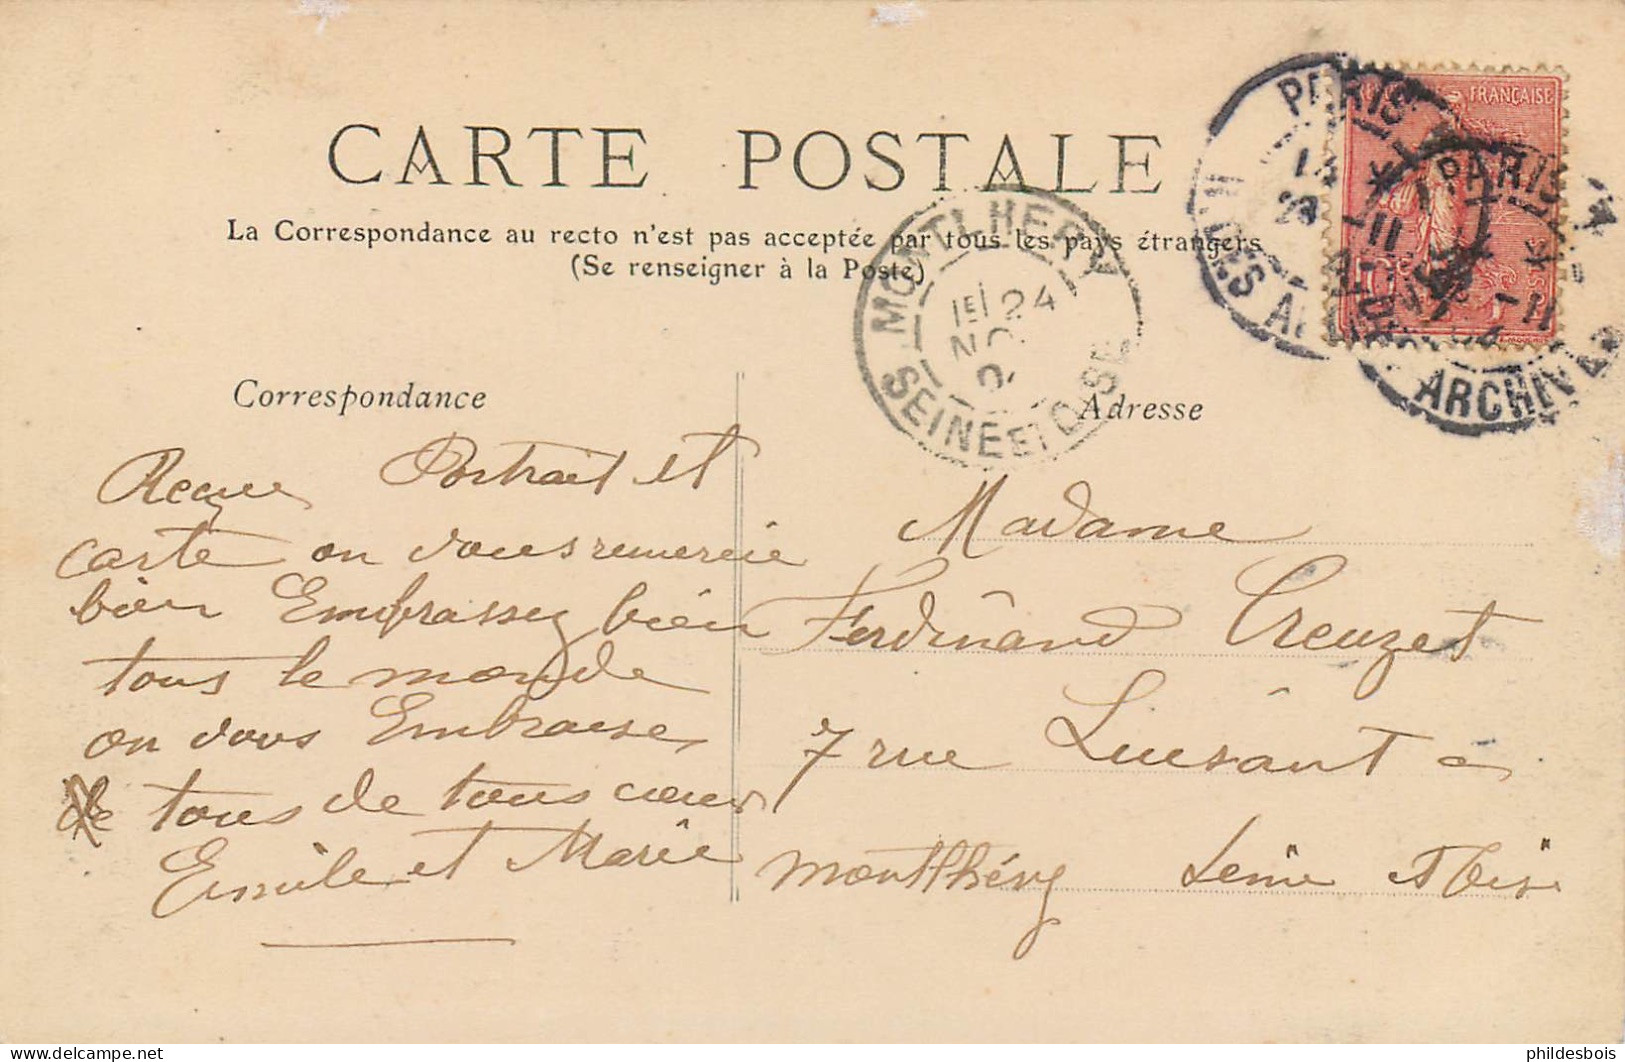 CARTE POSTALE
La Correspondance au recto n'est pas acceptée par tous les pays étrangers
(Se renseigner à la Poste)
FRANÇAISE
PARIS
PARIS
R. DES ARCHIVES
ARCHIV
MONTLHERY
1E 24
SEINE ET OISE
Correspondance
Adresse
Reçue Portrait et
carte on vous remercie
bien Embrassez bien
tous le monde
on vous Embrasse
de tous de tous cœur
Emile et Marie
Madame
Ferdinand Creuzet
7 rue Luisant a
Montlhéry Seine et Oise
phildesbois